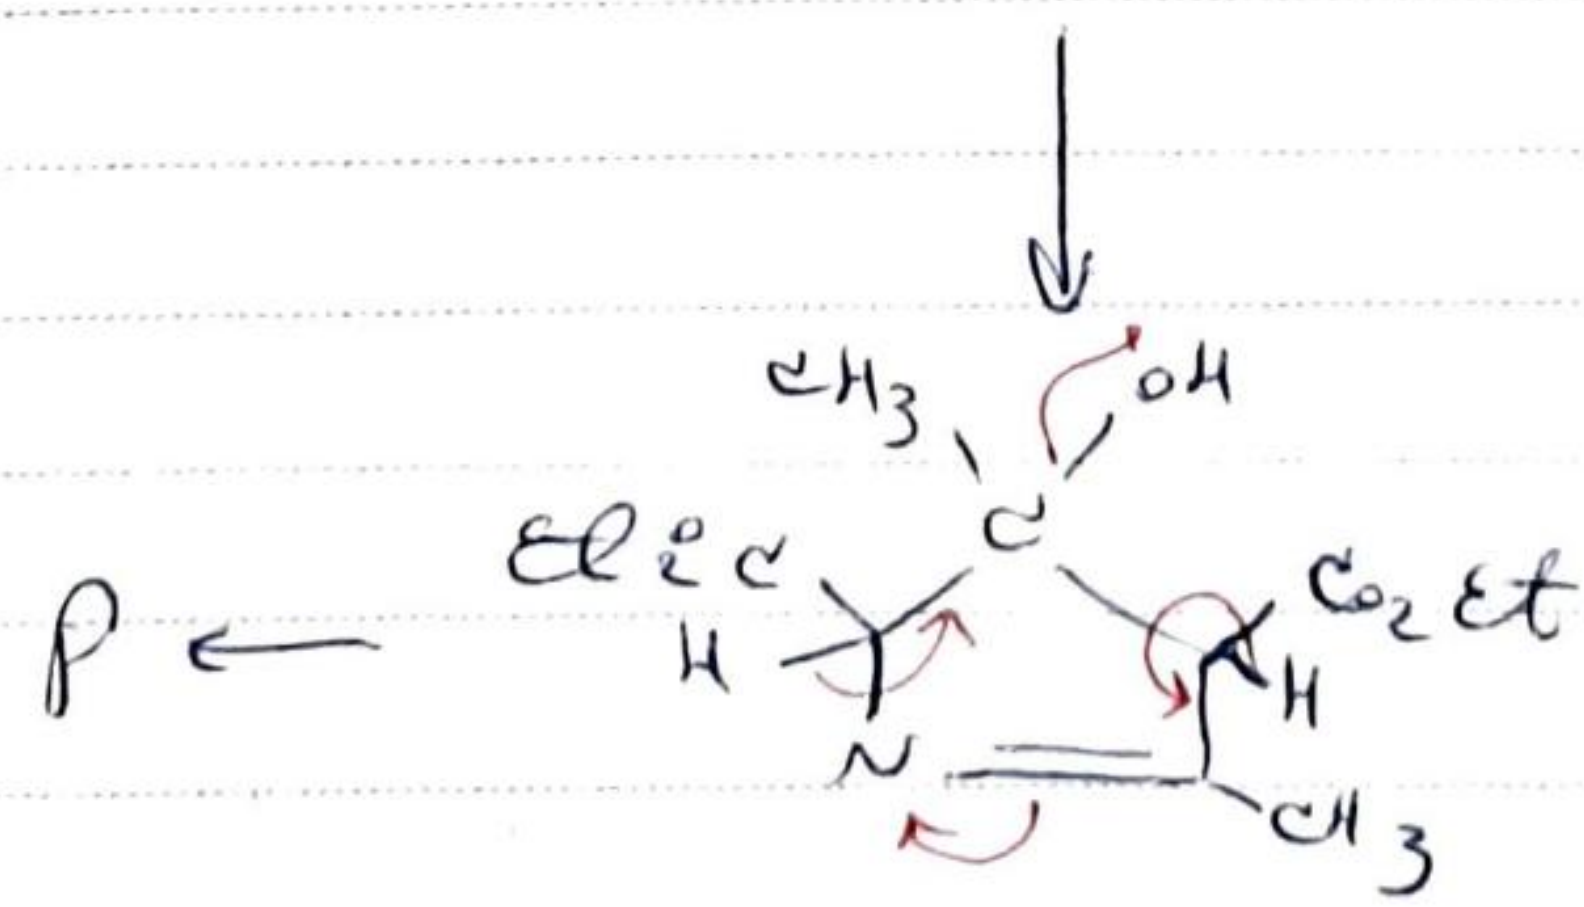 CH3 OH
C
Et O2 C CO2 Et
P ← H H
N
CH3